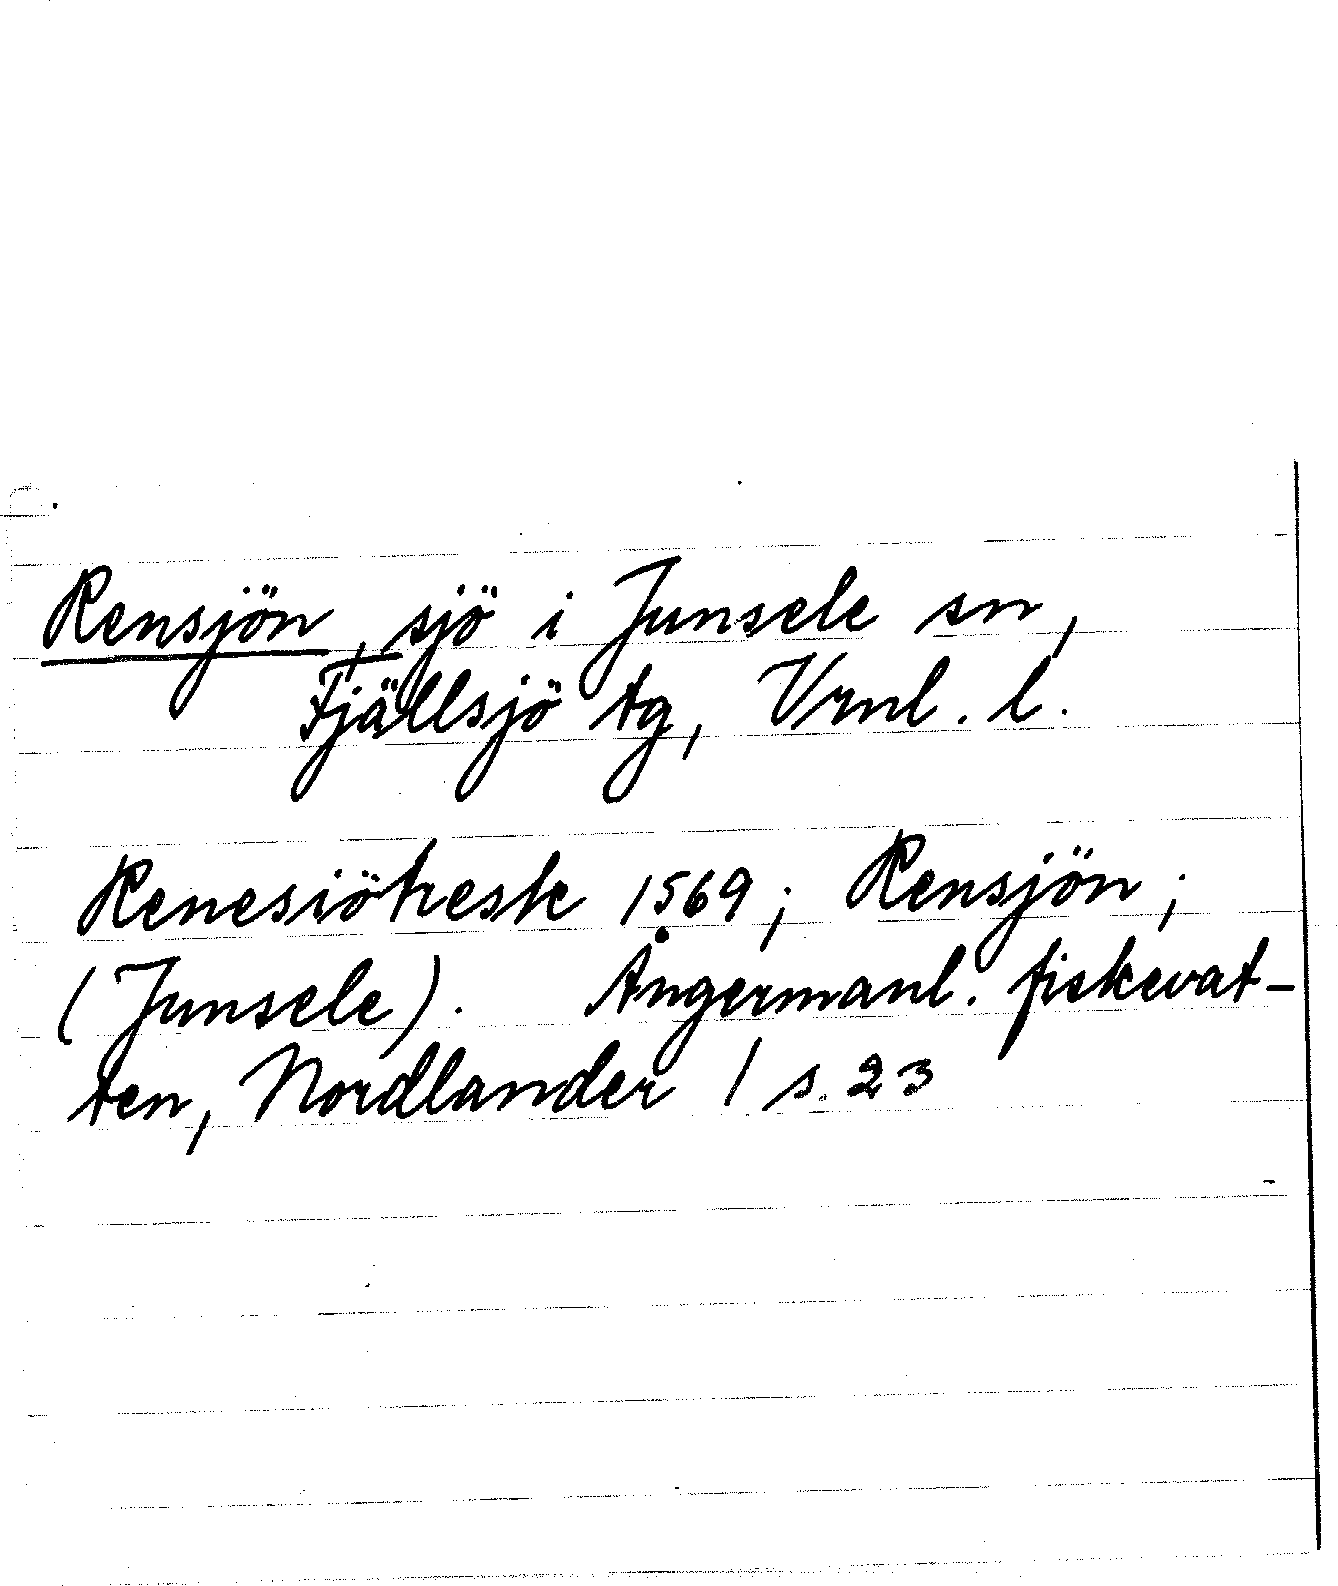 Rensjön, sjö i Junsele sn,
Fjällsjö tg, Vrnl. l.
Renesiöheske 1569; Rensjön;
(Junsele). Ångermanl. fiskevat-
ten, Nordlander 1 s. 23